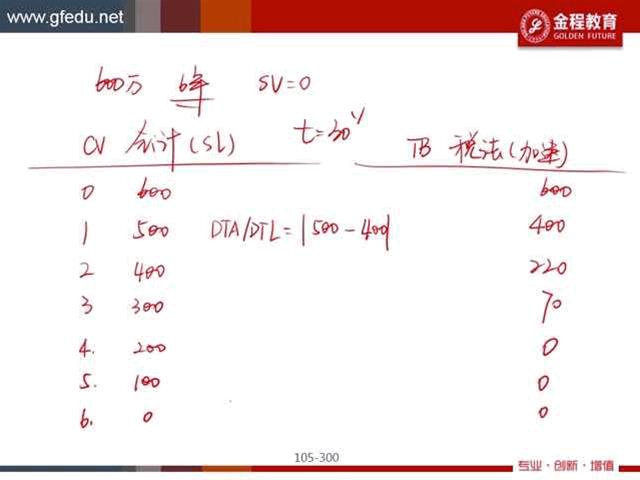 www.gfedu.net
金程教育
GOLDEN FUTURE
600万 6年 SV=0
CV 会计(SL) t=30% TB 税法(加速)
0 600 600
1 500 DTA/DTL=|500-400| 400
2 400 220
3 300 70
4. 200 0
5. 100 0
6. 0 0
105-300
专业·创新·增值